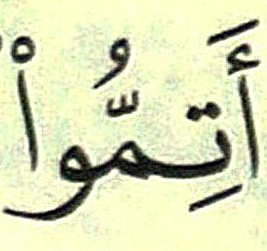 أَتِمُّواْ